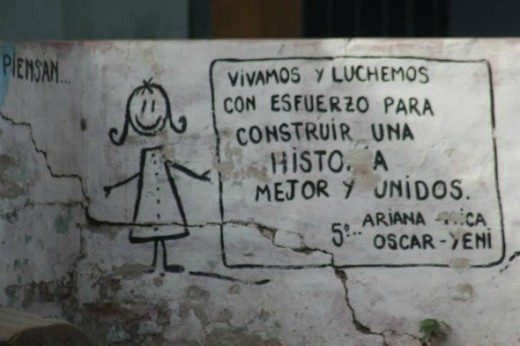 PIENSAN...
VIVAMOS Y LUCHEMOS
CON ESFUERZO PARA
CONSTRUIR UNA
MEJOR Y UNIDOS.
5º.. ARIANA
OSCAR-YENI